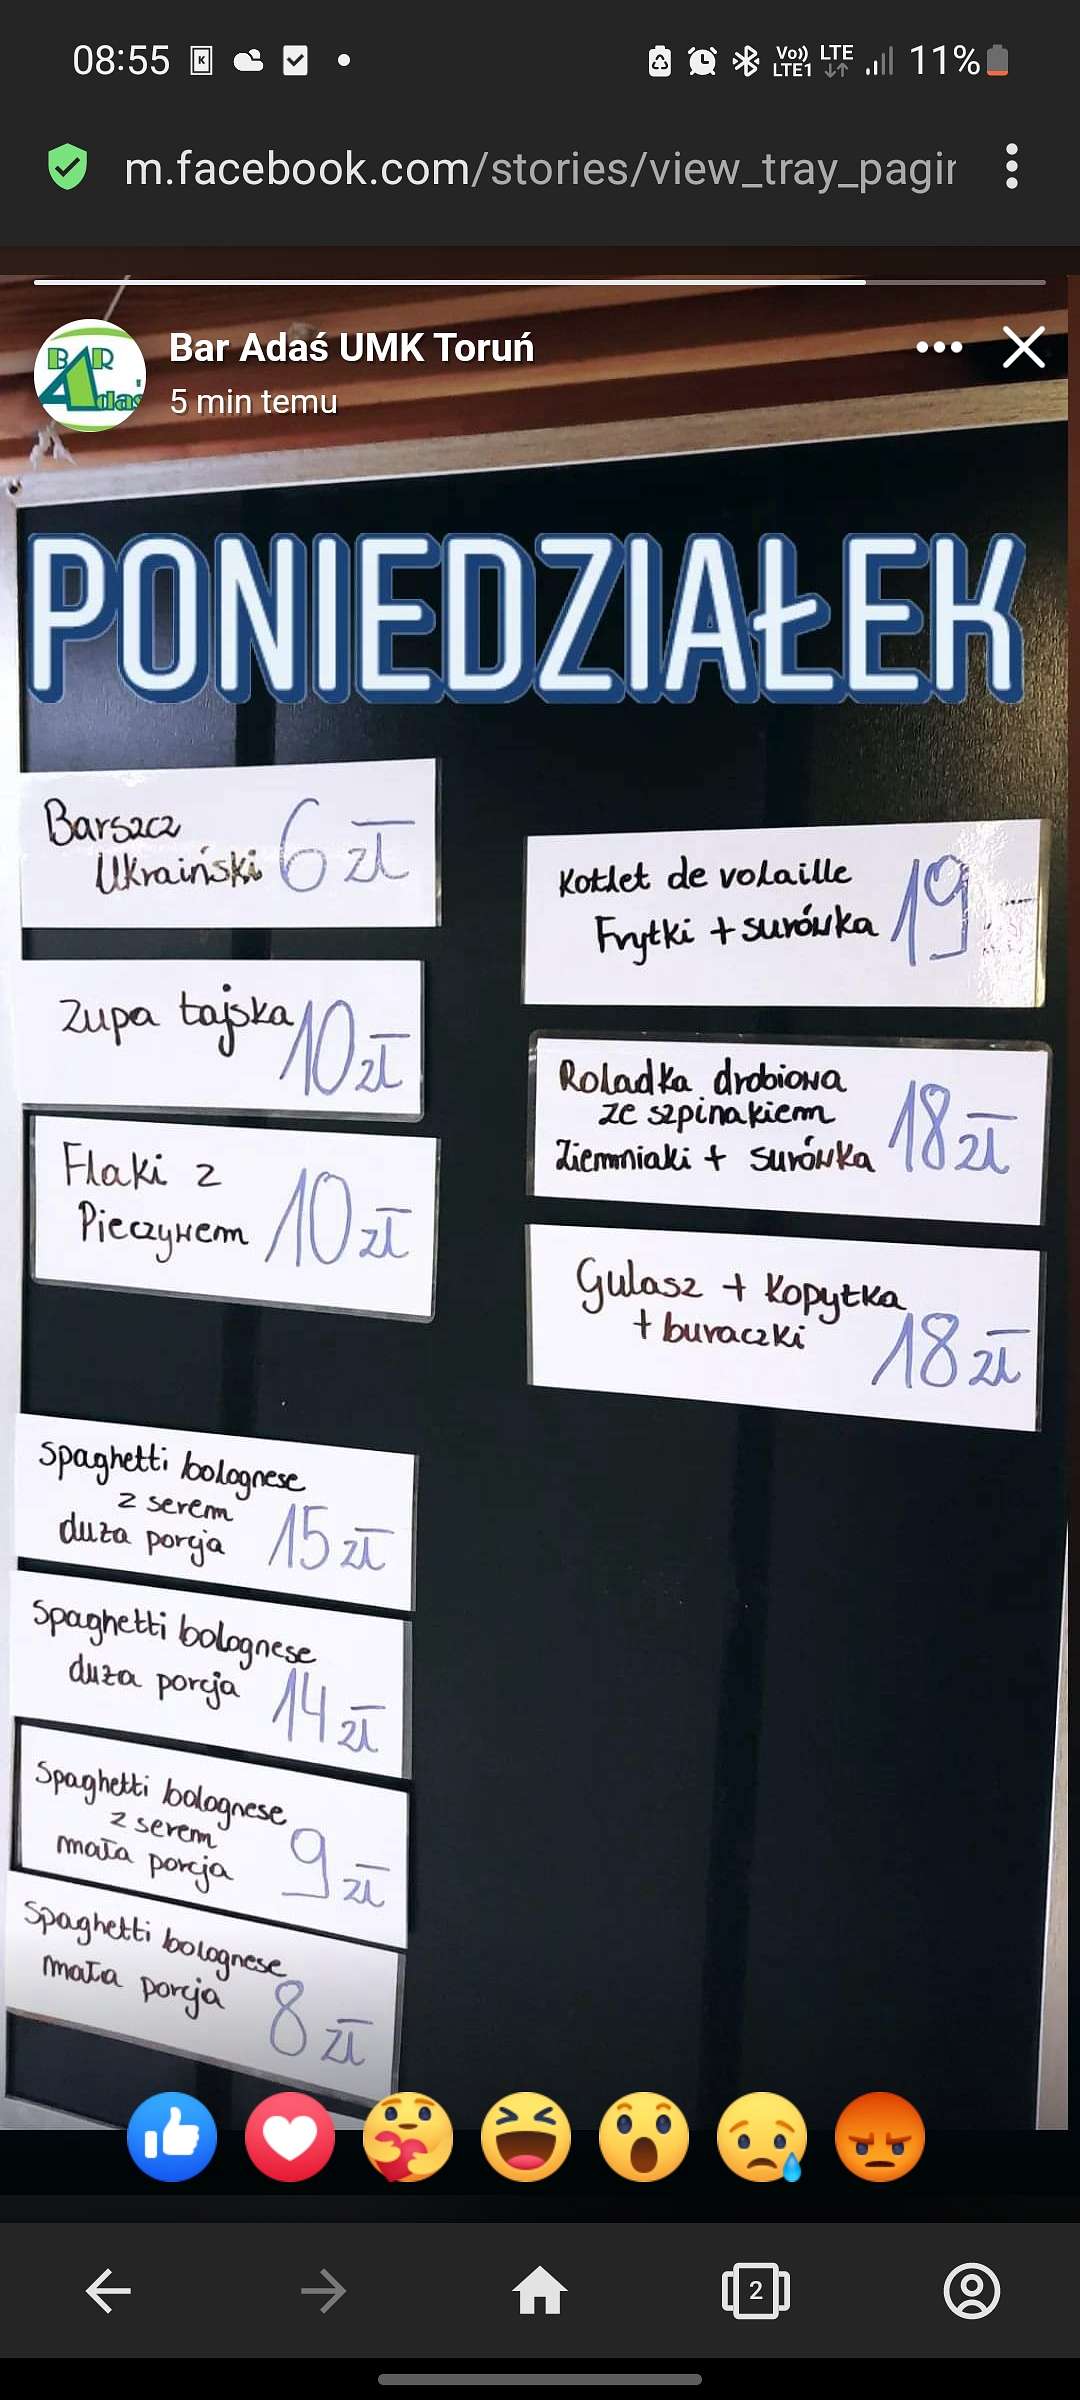 08:55
K
Vo)) LTE
LTE1
11%
m.facebook.com/stories/view_tray_pagir
BAR
Adaś
Bar Adaś UMK Toruń
5 min temu
PONIEDZIAŁEK
Barszcz
Ukraiński 6 zł
Zupa tajska 10 zł
Flaki z
Pieczywem 10 zł
Spaghetti bolognese
z serem
duża porcja 15 zł
Spaghetti bolognese
duża porcja 14 zł
Spaghetti bolognese
z serem
mała porcja 9 zł
Spaghetti bolognese
mała porcja 8 zł
Kotlet de volaille
Frytki + surówka 19
Roladka drobiowa
ze szpinakiem
Ziemniaki + surówka 18 zł
Gulasz + Kopytka
+ buraczki 18 zł
2